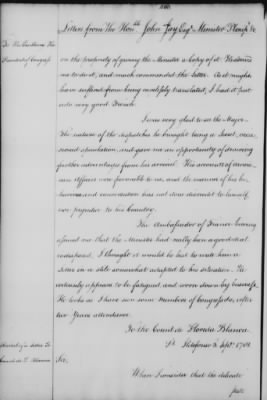 Letters from The Honble John Jay Esqr Minister Plenipo &c
To His Excellency The
President of Congress
on the propriety of giving the Minister a Copy of it. He advised
me to do it, and much commended the Letter. As it might
have suffered from being unskilfully translated, I had it put
into very good French.
I was very glad to see the Major.
The nature of the dispatches he brought being a Secret, occa
sioned speculation, and gave me an opportunity of deriving
further advantages from his arrival. His accounts of
American Affairs were favorable to us, and the manner of his be
haviour and conversation has not done discredit to himself
nor prejudice to his Country.
The Ambassador of France having
informed me that the Minister had really been a good deal
indisposed, I thought it would be best to wait here a
time on a stile somewhat adapted to his situation. He
certainly appears to be fatigued and worn down by business.
He looks as I have seen some Members of Congress do, after
two Years attendance.
To the Count de Florida Blanca
St. Ildefonso 22 Septr 1781
Sir,
When I consider that the delicate